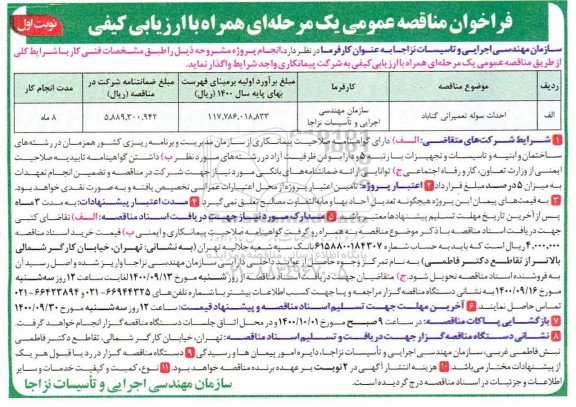 فراخوان مناقصه عمومی یک مرحله‌ای همراه با ارزیابی کیفی
نوبت اول
سازمان مهندسی اجرایی و تاسیسات نزاجا به عنوان کارفرما در نظر دارد، انجام پروژه مشروحه ذیل را طبق مشخصات فنی کار با شرایط کلی
از طریق مناقصه عمومی یک مرحله‌ای همراه با ارزیابی کیفی به شرکت پیمانکاری واجد شرایط واگذار نماید.
ردیف
موضوع مناقصه
کارفرما
مبلغ برآورد اولیه برمبنای فهرست بهای پایه سال ۱۴۰۰ (ریال)
مبلغ ضمانتنامه شرکت در مناقصه (ریال)
مدت انجام کار
الف
احداث سوله تعمیراتی گناباد
سازمان مهندسی اجرایی و تأسیسات نزاجا
۱۱۷,۷۸۶,۰۱۸,۸۳۳
۵,۸۸۹,۳۰۰,۹۴۲
۸ ماه
۱ شرایط شرکت‌های متقاضی: الف) دارای گواهینامه صلاحیت پیمانکاری از سازمان مدیریت و برنامه ریزی کشور همزمان در رشته‌های
ساختمان و ابنیه و تاسیسات و تجهیزات با رتبه ۵ و دارا بودن ظرفیت آزاد در رشته‌های مورد نظر. ب) داشتن گواهینامه تاییدیه صلاحیت
ایمنی از وزارت تعاون، کار و رفاه اجتماعی ج) توانایی ارائه ضمانتنامه‌های بانکی مورد نیاز جهت شرکت در مناقصه و تضمین انجام تعهدات
به میزان ۵ درصد مبلغ قرارداد ۲ اعتبار پروژه: تامین اعتبار پروژه از محل اعتبارات عمرانی تخصیص یافته و به صورت نقدی خواهد بود.
۳ به قیمت‌های پیمان این پروژه هیچگونه تعدیل آحاد بهاء و مابه التفاوت مصالح تعلق نمی گیرد. ۴ مدت اعتبار پیشنهادات: به مدت ۳ ماه
پس از آخرین تاریخ مهلت تسلیم پیشنهادها معتبر ۵ مدارک مورد نیاز جهت دریافت اسناد مناقصه: الف) تقاضای کتبی
جهت دریافت اسناد مناقصه با ذکر موضوع مناقصه به همراه رو گرفت گواهینامه صلاحیت پیمانکاری و ایمنی ب) قیمت خرید اسناد مناقصه
۴,۰۰۰,۰۰۰ ریال است که باید به حساب شماره ۶۱۵۸۸۰۰۱۸۴۳۰۷ بانک سپه شعبه جلالیه تهران (به نشانی: تهران، خیابان کارگر شمالی
بالاتر از تقاطع دکتر فاطمی) به نام تمرکز وجوه عواید داخلی پارسی سازمان مهندسی نزاجا واریز شده و اصل رسید آن
به فروشنده اسناد مناقصه تحویل شود. ج) متقاضیان جهت از روز شنبه مورخ ۱۴۰۰/۰۹/۱۳ لغایت ساعت ۱۲ روز سه‌شنبه
مورخ ۱۴۰۰/۰۹/۱۶ به نشانی دستگاه مناقصه گزار مراجعه و یا جهت کسب اطلاعات بیشتر با شماره تلفن‌های ۶۶۹۴۴۳۲۵-۰۲۱ و ۶۶۴۲۳۸۹۴-۰۲۱
تماس حاصل نمایند. ۶ آخرین مهلت جهت تسلیم اسناد مناقصه و پیشنهاد قیمت: ساعت ۱۲ روز سه‌شنبه مورخ ۱۴۰۰/۰۹/۳۰
۷ بازگشایی پاکات مناقصه: در ساعت ۹ صبح مورخ ۱۴۰۰/۱۰/۰۱ و در محل اتاق جلسات دستگاه مناقصه گزار انجام خواهد گرفت.
۸ نشانی دستگاه مناقصه گزار جهت دریافت و تسلیم اسناد مناقصه: تهران، خیابان کارگر شمالی، تقاطع دکتر فاطمی
نبش فاطمی غربی، سازمان مهندسی اجرایی و تأسیسات نزاجا، دایره امور پیمان ها و رسیدگی ۹ دستگاه مناقصه گزار در رد یا قبول هر یک
از پیشنهادات مختار می‌باشد ۱۰ هزینه انتشار آگهی در ۲ نوبت بر عهده برنده مناقصه خواهد بود. ۱۱ نوع، کمیت و کیفیت خدمات و سایر
اطلاعات و جزئیات در اسناد مناقصه درج گردیده است.
سازمان مهندسی اجرایی و تأسیسات نزاجا